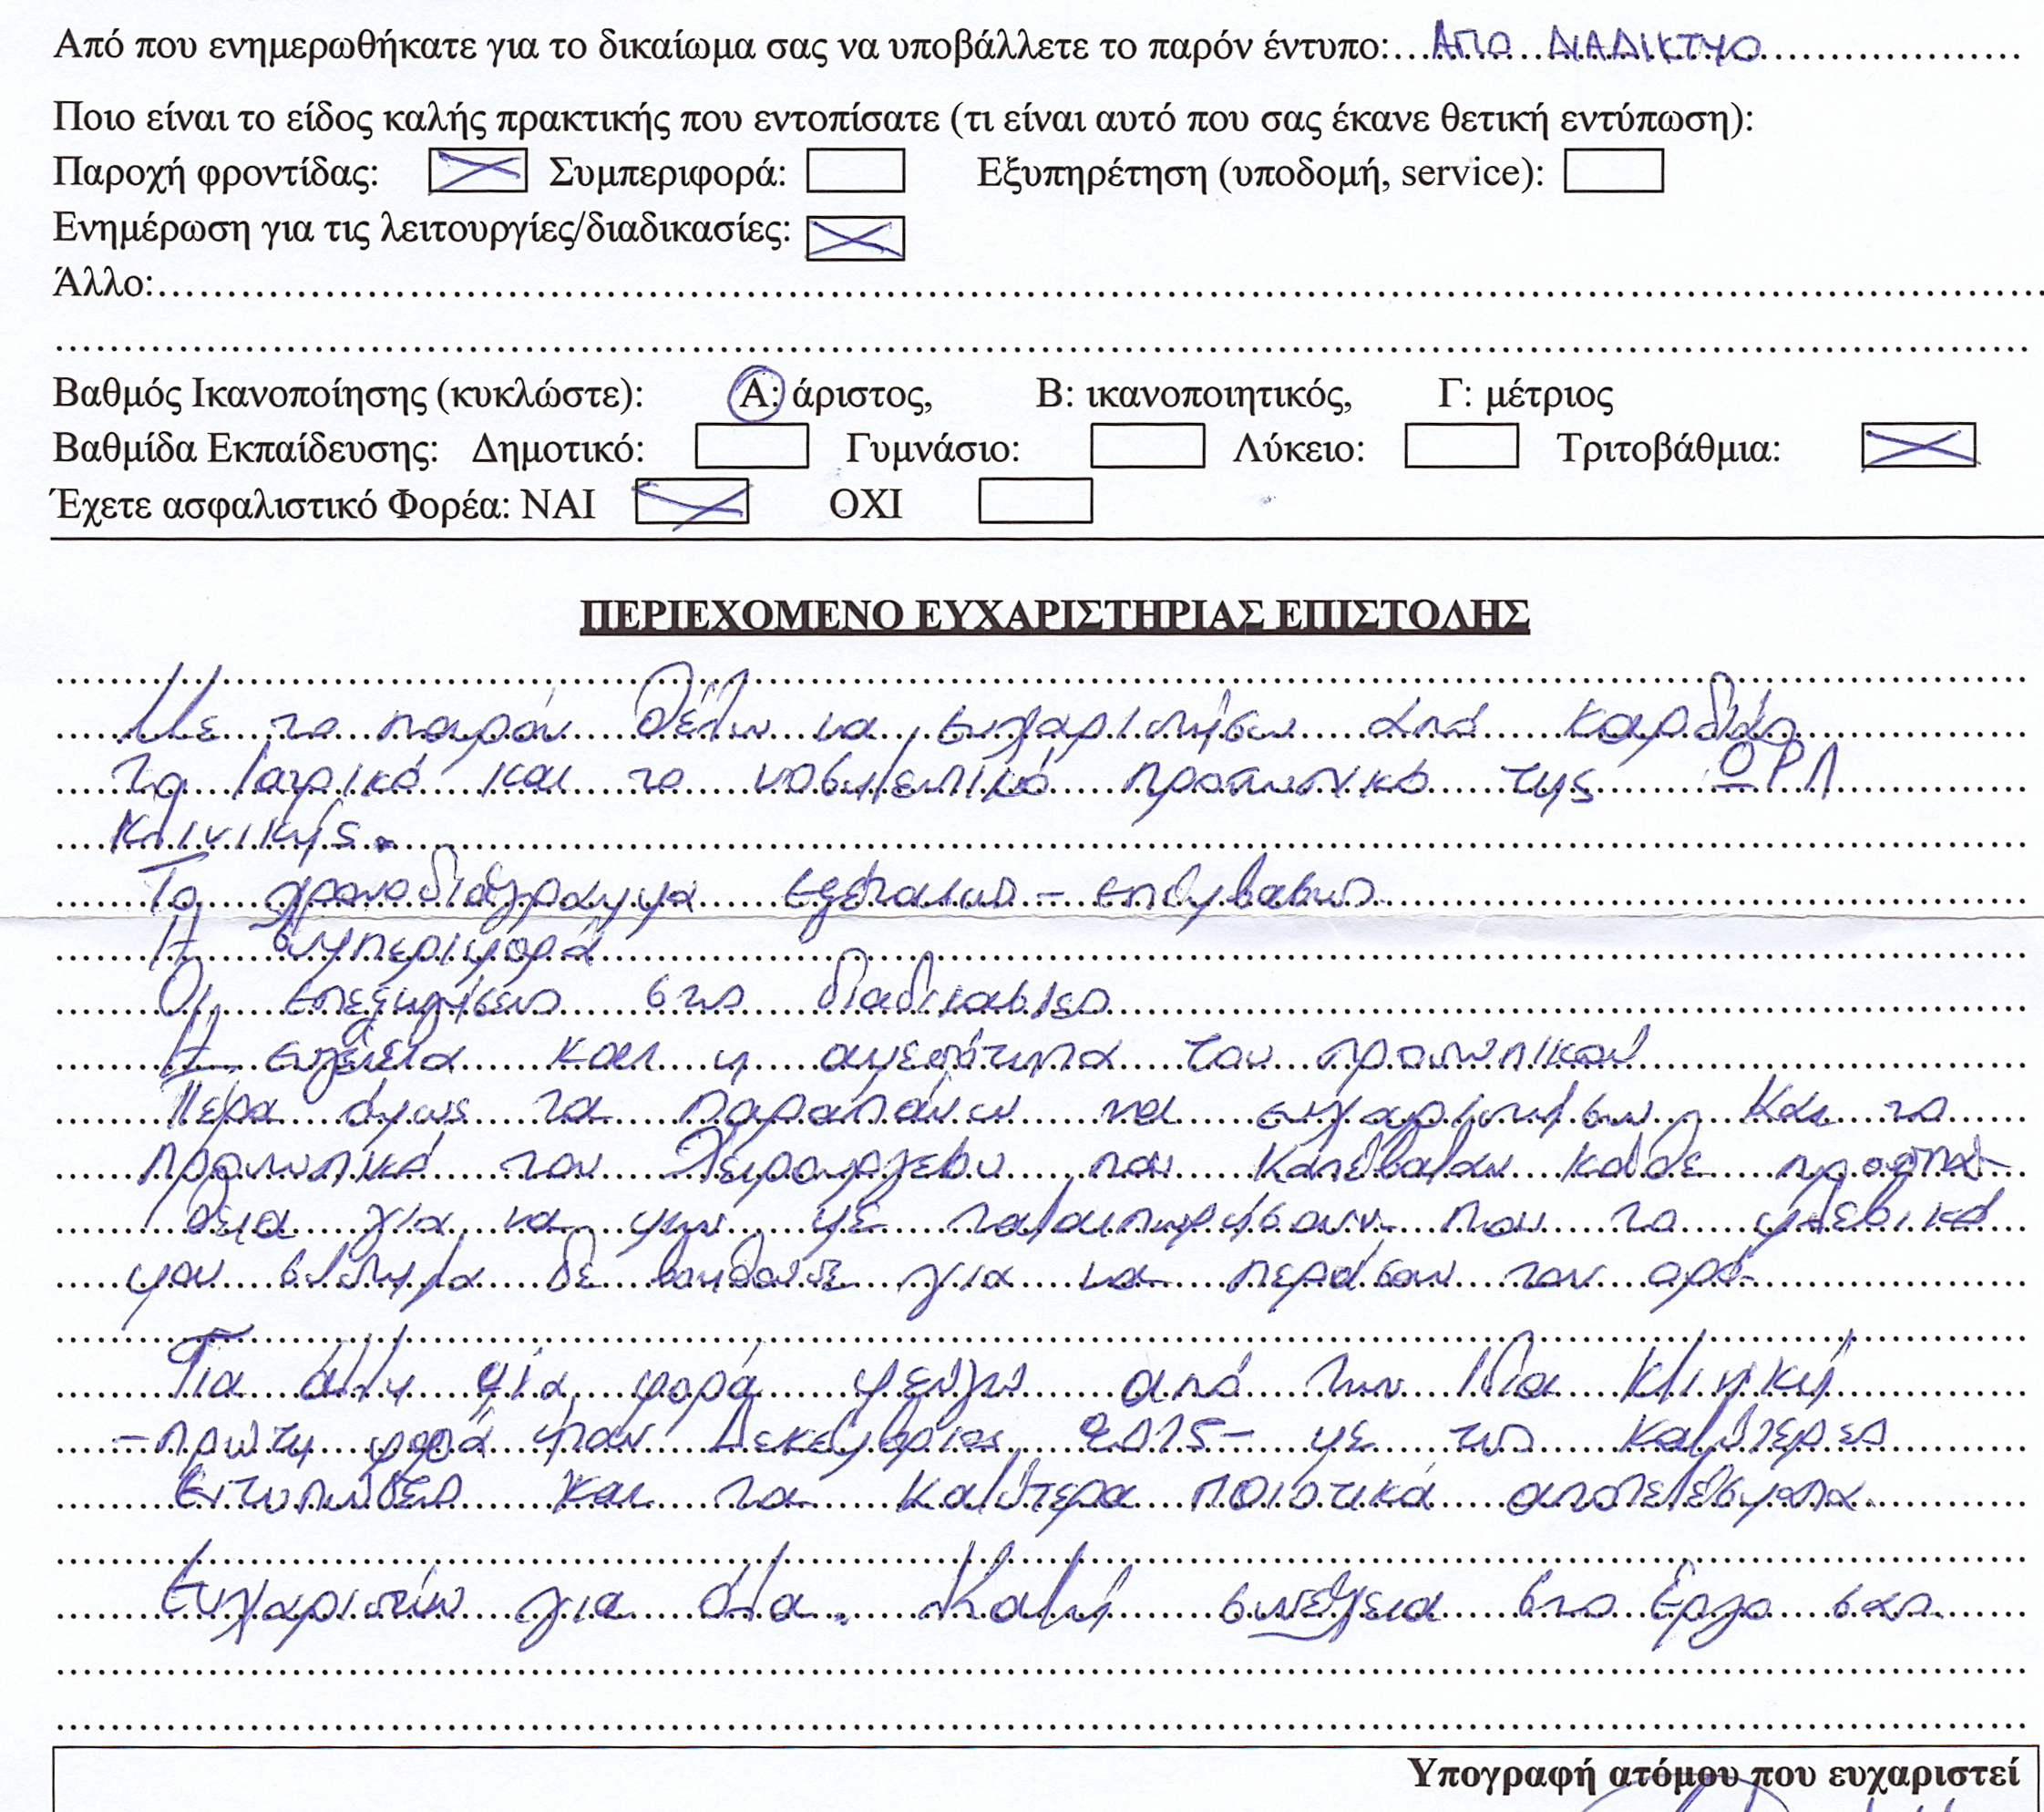 Από που ενημερωθήκατε για το δικαίωμα σας να υποβάλλετε το παρόν έντυπο: ΑΠΟ ΔΙΑΔΙΚΤΥΟ
Ποιο είναι το είδος καλής πρακτικής που εντοπίσατε (τι είναι αυτό που σας έκανε θετική εντύπωση):
Παροχή φροντίδας: Συμπεριφορά: Εξυπηρέτηση (υποδομή, service):
Ενημέρωση για τις λειτουργίες/διαδικασίες:
Άλλο:
Βαθμός Ικανοποίησης (κυκλώστε): Α: άριστος, Β: ικανοποιητικός, Γ: μέτριος
Βαθμίδα Εκπαίδευσης: Δημοτικό: Γυμνάσιο: Λύκειο: Τριτοβάθμια:
Έχετε ασφαλιστικό Φορέα: ΝΑΙ ΟΧΙ
ΠΕΡΙΕΧΟΜΕΝΟ ΕΥΧΑΡΙΣΤΗΡΙΑΣ ΕΠΙΣΤΟΛΗΣ
Με το παρόν θέλω να ευχαριστήσω από καρδιάς
το Ιατρικό και το νοσηλευτικό προσωπικό της ΩΡΛ
Κλινικής.
Το χρονοδιάγραμμα εξετασεως - επέμβασεως
Η συμπεριφορά
Οι επεξηγήσεις στις διαδικασίες
Η ευγένεια και η αμεσότητα του προσωπικού
Πέρα όμως τα παραπάνω να ευχαριστήσω και το
προσωπικό του Χειρουργείου που κατέβαλαν κάθε προσπά-
θεια για να μην με ταλαιπωρήσουν που το φλεβικό
μου σύστημα δε βοηθούσε για να περάσουν τον ορό.
Για άλλη μία φορά φεύγω από την ίδια κλινική
- πρώτη φορά ήταν Δεκέμβριος 2015 - με τις καλύτερες
εντυπώσεις και τα καλύτερα ποιοτικά αποτελέσματα.
Ευχαριστώ για όλα. Καλή συνέχεια στο έργο σας
Υπογραφή ατόμου που ευχαριστεί